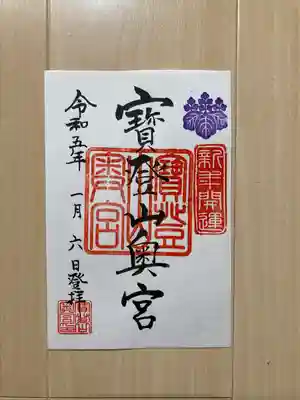 新年開運
寳登山奥宮
寳登
奥宮
令和五年 一月 六日登拝